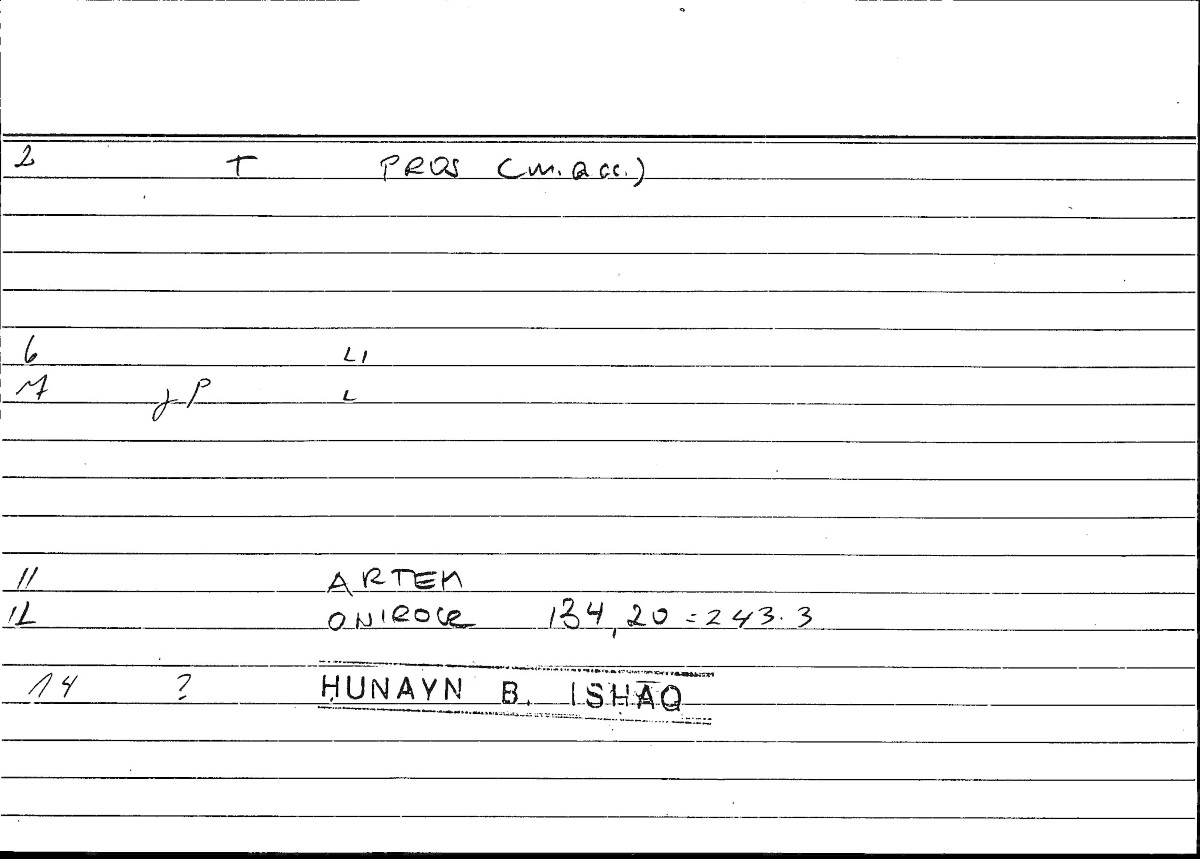 2 T PROS (m. acc.)
6 LI
7 P L
11 ARTEM
12 ONIROCR 134,20 = 243.3
14 ? HUNAYN B. ISHĀQ